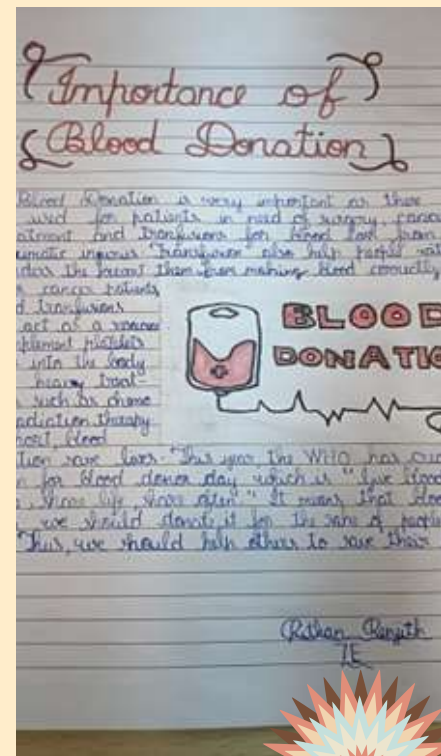 Importance of
Blood Donation
Blood Donation is very important as there
used for patients in need of surgery, cancer
and transfusions for blood loss from
Transfusion also help people
the prevent them from making blood correctly
cancer patients
transfusions
act as a
platelets
into the body
heavy treat-
such as chemo
radiation therapy
blood
BLOOD
DONATIO
save lives. This year, the WHO has
for blood donor day which is "Give blood
, share life, share often" It means that
we should donate it for the sake of people
Thus, we should help others to save their
7E